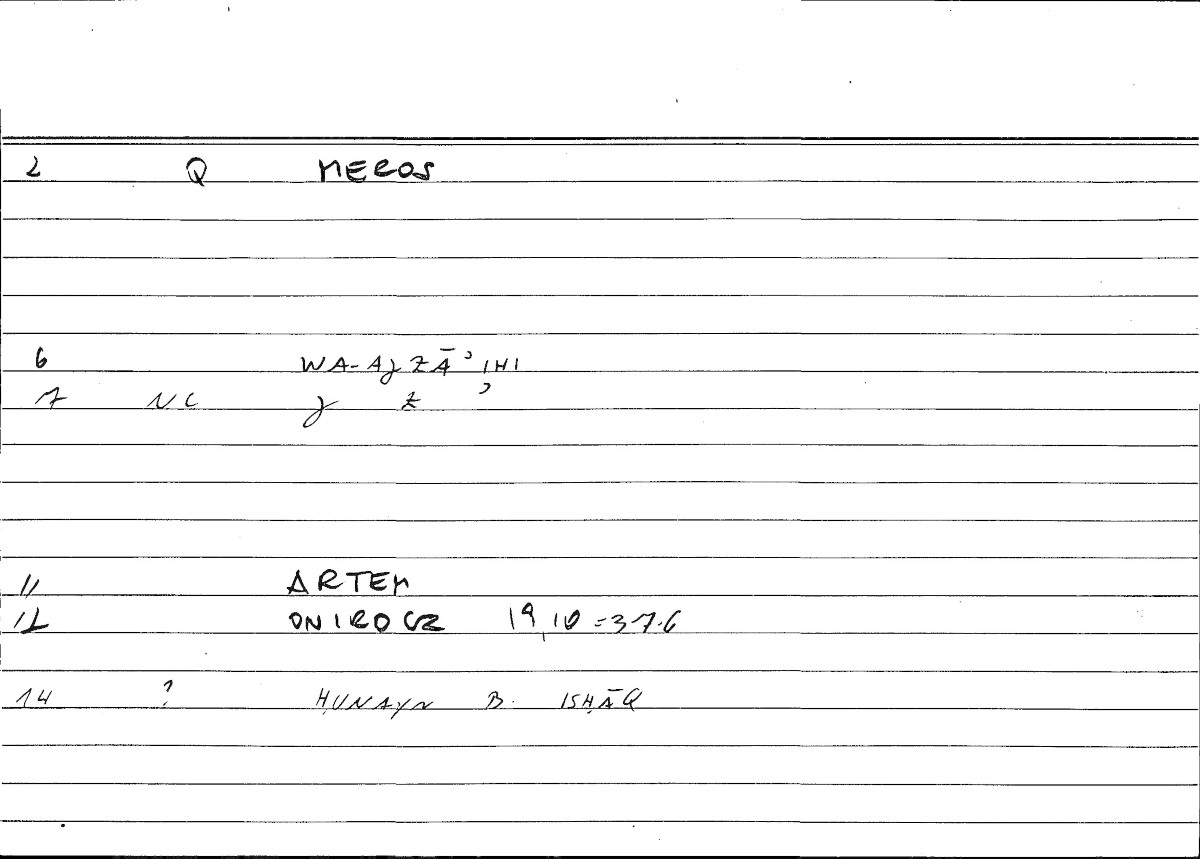 2 Q MEROS
6 WA-AJZĀʾIHI
7 NC J Z ʾ
11 ARTEM
12 ONIROCR 19,10=37.6
14 ? ḤUNAYN B. ISḤĀQ